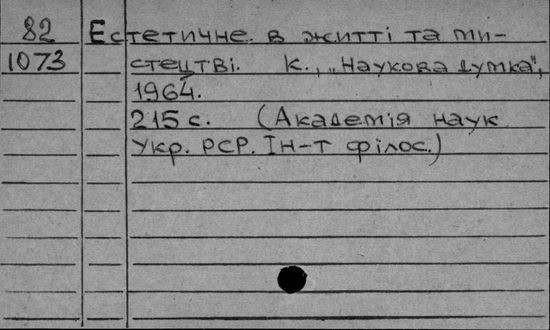 82 Естетичне в житті та ми-
1073 стецтві. К., „Наукова думка",
1964.
215 с. (Академія наук
Укр. РСР. Ін-т філос.)